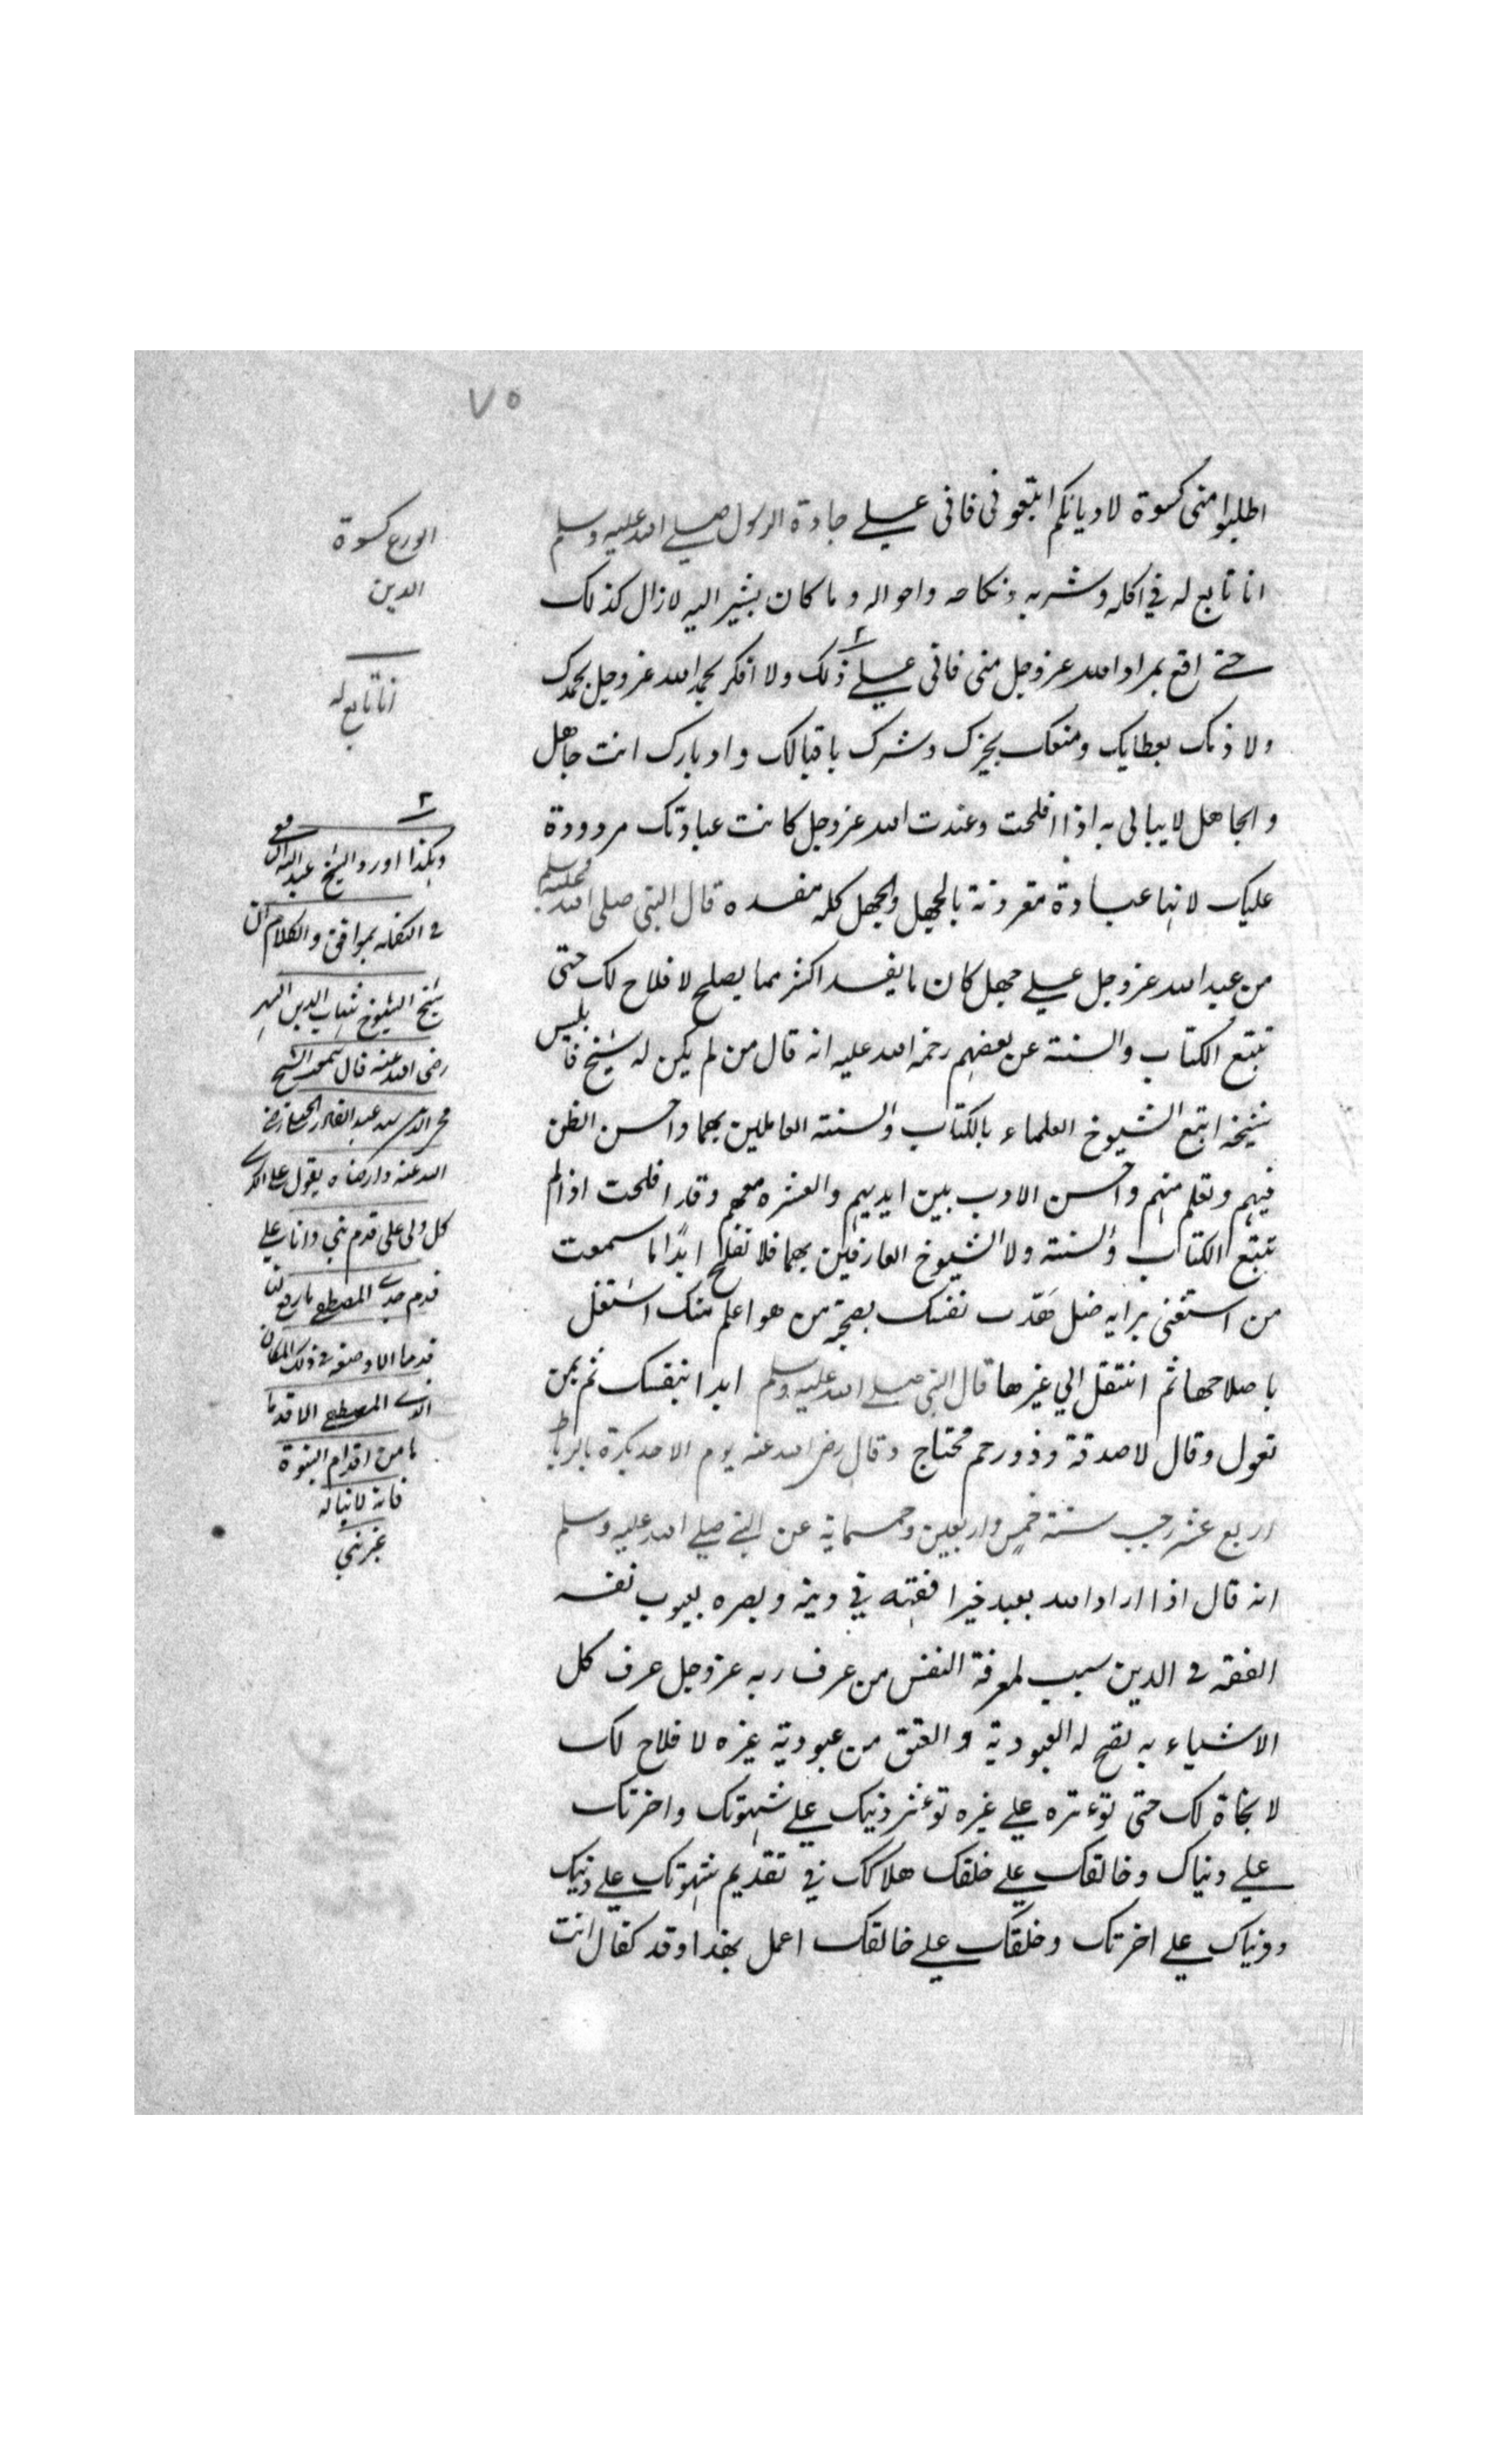 ٧٥
اطلبوا منى كسوة لاديانكم ابتعونى فانى على جادة الرسول صلى الله عليه وسلم
انا تابع له في اكله وشربه ونكاحه واحواله وما كان يشير اليه لازال كذلك
حتى اقع بمراد الله عزوجل منى فانى على ذلك ولا افكر بحمد الله عزوجل بحمدك
ولا ذمك بعطايك ومنعك بخيرك وشرك باقبالك وادبارك انت جاهل
والجاهل لا يبالى به اذا افلحت وعبدت الله عزوجل كانت عبادتك مردودة
عليك لانها عبادة مقرونة بالجهل والجهل كله مفسده قال النبى صلى الله عليه وسلم
من عبد الله عزوجل على جهل كان ما يفسد اكثر مما يصلح لا فلاح لك حتى
تتبع الكتاب والسنة عن بعضهم رحمة الله عليه انه قال من لم يكن له شيخ فابليس
شيخه اتبع الشيوخ العلماء بالكتاب والسنة العاملين بهما واحسن الظن
فيهم وتعلم منهم واحسن الادب بين ايديهم والعشره معهم وقد افلحت اذا لم
تتبع الكتاب والسنة ولا الشيوخ العارفين بهما فلا تفلح ابدًا ما سمعت
من استغنى برايه ضل هَذّب نفسك بصحبة من هو اعلم منك اشتغل
باصلاحها ثم انتقل الى غيرها قال النبى صلى الله عليه وسلم ابدا بنفسك ثم بمن
تعول وقال لا صدقة وذو رحم محتاج وقال رضى الله عنه يوم الاحد بكرة بالرباط
اربع عشر رجب سنة خمس واربعين وخمسماية عن النبى صلى الله عليه وسلم
انه قال اذا اراد الله بعبد خيرا فقهه في دينه وبصره بعيوب نفسه
الفقه في الدين سبب لمعرفة النفس من عرف ربه عزوجل عرف كل
الاشياء به تصح له العبودية والعتق من عبودية غيره لا فلاح لك
لا نجاة لك حتى توءثره على غيره توءثر دينك على شهوتك واخرتك
على دنياك وخالقك على خلقك هلاكك في تقديم شهوتك على دينك
ودنياك على اخرتك وخلقك على خالقك اعمل بهذا وقد كفال انت
الورع كسوة
الدين
انا تابع له
٢
وهكذا اورد الشيخ عبد الله اليافعى
في التكمله بموافق والكلام ان
شيخ الشيوخ شهاب الدين السهر
رضى الله عنه قال سمعت الشيخ
محى الدين عبد القادر الجيلى رضى
الله عنه وارضاه يقول على الكرسى
كل ولى على قدم نبى وانا على
قدم جدى المصطفى ما رفع
قدما الا وضعت في ذلك المكان
الذى المصطفى الا قدما
ما من اقدام النبوة
فانه لا يناله
غير نبى